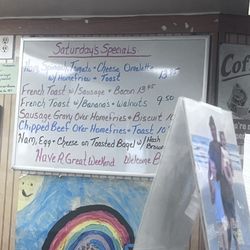 Saturday's Specials
Ham, Spinach, Tomato + Cheese Omelette
w/Homefries + Toast 13.95
French Toast w/Sausage + Bacon 13.95
French Toast w/Bananas + Walnuts 9.50
Sausage Gravy Over Homefries + Biscuit 10
Chipped Beef Over Homefries + Toast 10
Ham, Egg + Cheese on Toasted Bagel w/Hash
Brown
Have A Great Weekend Welcome B
Cof